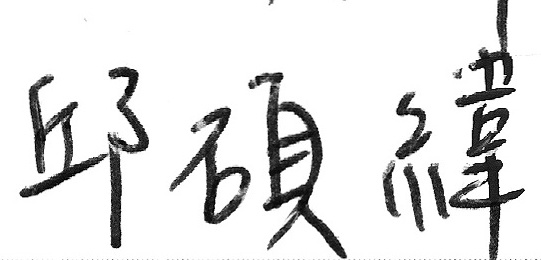 邱碩緯